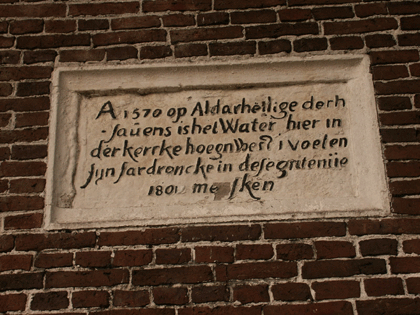 A 1570 op Aldarheilige derh
-sauens is het Water hier in
der kercke hoegh west 1 voeten
syn fardroncke in dese
1801 me